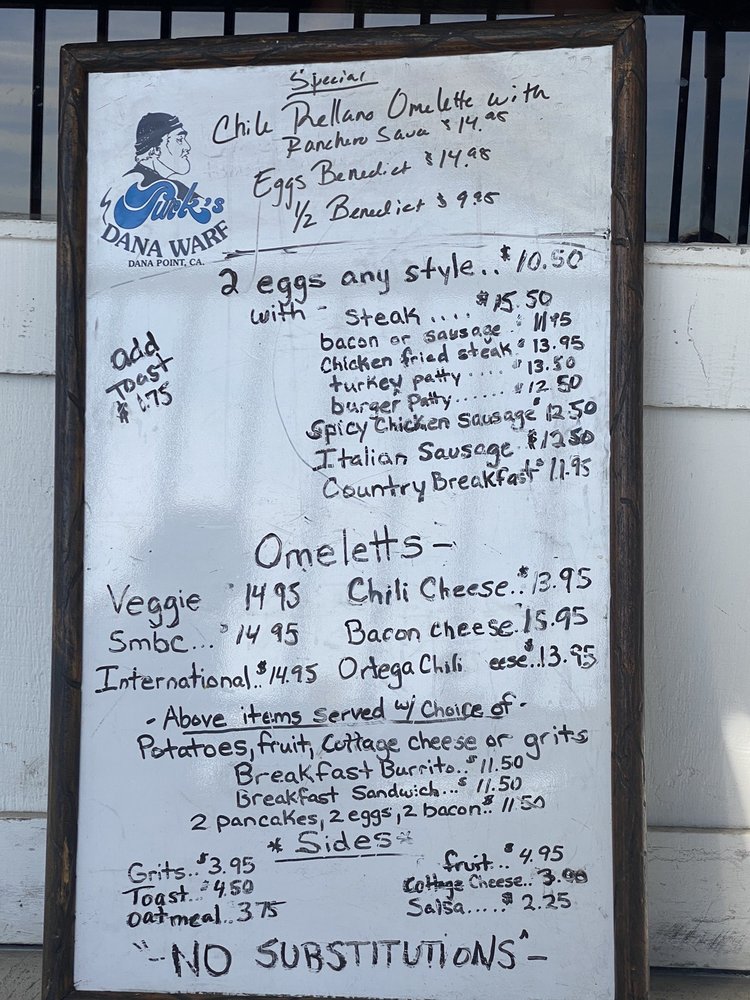 Special
Chile Rellano Omelette with
Ranchero Sava $14.95
Eggs Benedict $14.95
1/2 Benedict $9.95
Turk's
DANA WARF
DANA POINT, CA.
2 eggs any style.. $10.50
with - steak .... $15.50
bacon or sausage. 11.95
Chicken fried steak $13.95
turkey patty ..... $13.50
burger Patty...... $12.50
Spicy Chicken Sausage $12.50
Italian Sausage $12.50
Country Breakfast $11.95
add
Toast
$1.75
Omeletts-
Veggie 14 95 Chili Cheese..$13.95
Smbc... $14 95 Bacon cheese.15.95
International..$14.95 Ortega Chili eese..$13.95
- Above items served w/ Choice of -
Potatoes, fruit, Cottage cheese or grits
Breakfast Burrito..$11.50
Breakfast Sandwich...$11.50
2 pancakes, 2 eggs, 2 bacon..$11 50
* Sides *
Grits..$3.95 fruit...$4.95
Toast..$4.50 Cottage Cheese..
oatmeal..3.75 Salsa.....$2.25
"-NO SUBSTITUTIONS"-